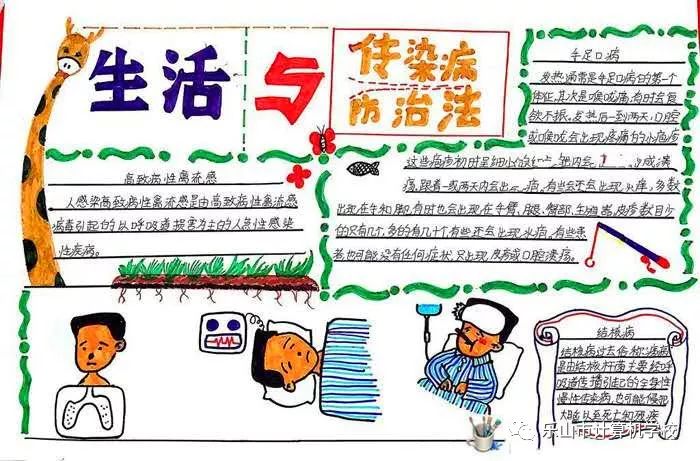 生活与传染病
防治法
手足口病
发热通常是手足口病的第一个
体征,其次是喉咙痛,有时会食
欲不振。发热后一到两天,口腔
或喉咙会出现疼痛的水疱疮
这些疮疹初时呈细小的红
疡,跟着一或两天内会出 疹,有些会还会出现水疱,多数
出现在手和脚,有时也会出现在手臂、腿、臀部、生殖器,皮疹数目少
的只有几个,多的有几十个,有些还会出现水疱,有些患
者也可能没有任何症状,只出现皮疹或口腔溃疡。
高致病性禽流感
人感染高致病性禽流感是由高致病性禽流感
病毒引起的以呼吸道损害为主的人急性感染
性疾病。
结核病
结核病过去俗称痨病
是由结核杆菌主要经呼
吸道传播引起的全身性
慢性传染病,也可能侵犯
大脑以至死亡和残疾
乐山市计算机学校